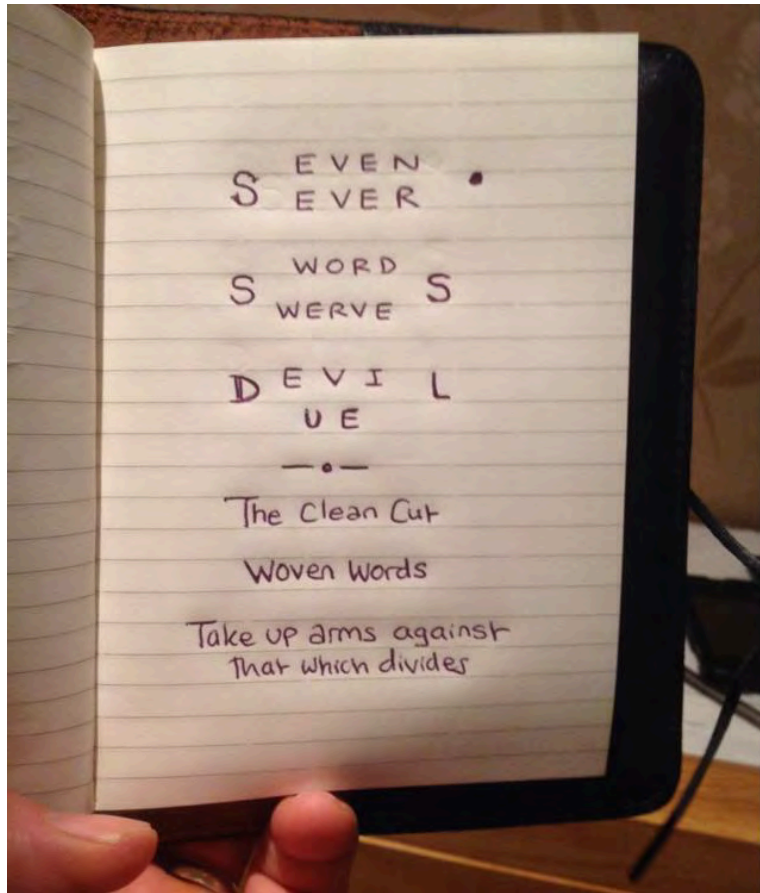 EVEN
S •
EVER
WORD
S S
WERVE
D EVI L
UE
—•—
The Clean Cut
Woven Words
Take up arms against
that which divides